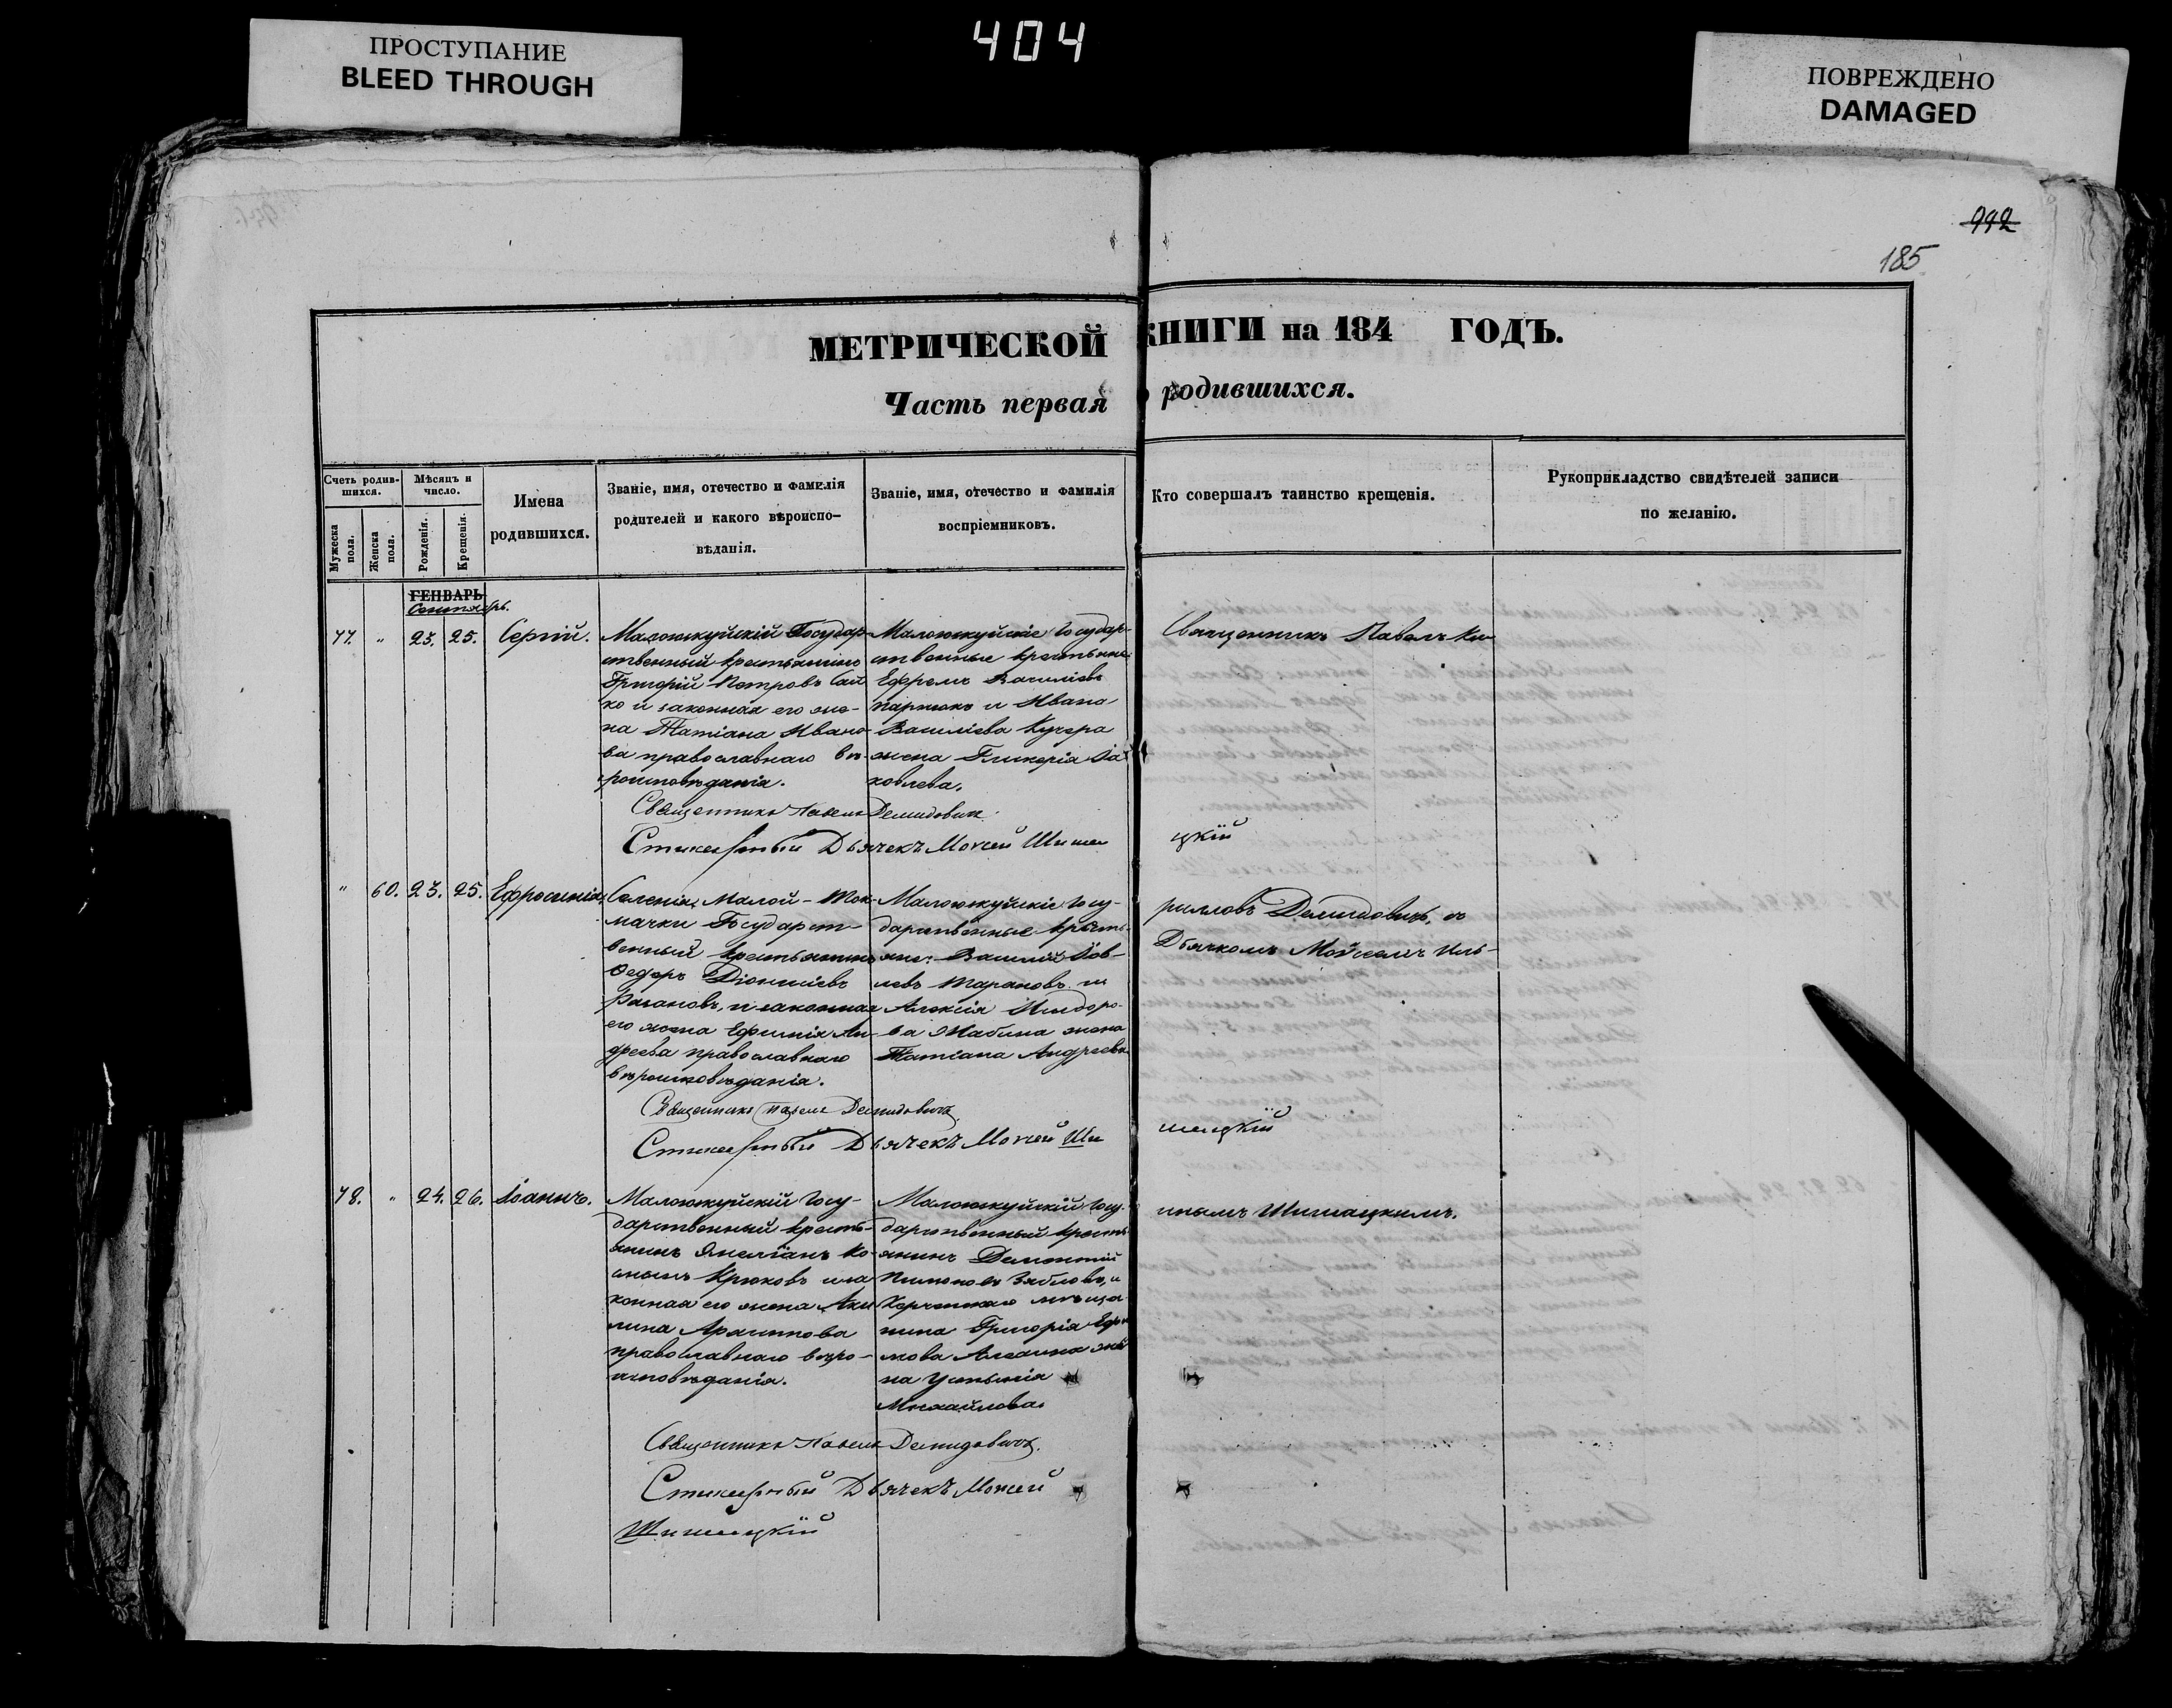 ПРОСТУПАНИЕ
BLEED THROUGH
404
ПОВРЕЖДЕНО
DAMAGED
992
185
МЕТРИЧЕСКОЙ КНИГИ на 184 ГОДЪ.
Часть первая о родившихся.
Счетъ родив-
шихся.
Мужеска пола.
Женска пола.
Мѣсяцъ и
число.
Рожденія.
Крещенія.
Имена
родившихся.
Званіе, имя, отечество и фамилія
родителей и какого вѣроиспо-
вѣданія.
Званіе, имя, отечество и фамилія
воспріемниковъ.
Кто совершалъ таинство крещенія.
Рукоприкладство свидѣтелей записи
по желанію.
ГЕНВАРЬ
Сентябрь.
77. " 23. 25. Сергій.
Малоюкуйскій Государ-
ственный крестьянинъ
Григорій Петровъ Сай
ко и законная его же-
на Татіана Ивано-
ва православнаго вѣ-
роисповѣданія.
Малоюкуйскіе Государ-
ственные крестьяне:
Ефремъ Василіевъ
и Ивана
Василіева Кучера
жена Гликерія Іа
ковлева.
Священникъ Павелъ Ки
Священникъ Павелъ Демидовичъ
Стихарный Дьячекъ Моисей Шиша
цкій
" 60. 23. 25. Ефросинія
Селенія Малой-Ток-
мачки Государст-
венный крестьянинъ
Ѳедоръ Діонисіевъ
и законная
его жена Ефимія Ан-
дреева православнаго
вѣроисповѣданія.
Малоюкуйскіе Госу-
дарственные кресть-
яне: Василій Іов-
левъ Тарановъ и
Алексія Исидоро-
ва жена
Татіана Андреева
рилловъ Демидовичъ, съ
Дьячкомъ Мойсеемъ Иль-
Священникъ Павелъ Демидовичъ
Стихарный Дьячекъ Моисей Ши
шацкій
78. " 24. 26. Іоаннъ.
Малоюкуйскій Госу-
дарственный кресть-
янинъ Емеліанъ Ко-
Крюковъ и за
конная его жена Аки
лина Архипова
православнаго вѣро-
исповѣданія.
Малоюкуйскій Госу-
дарственный кресть
янинъ Дементій
и
мѣща
нина Григорія Ефи
мова же
на Устинія
Михайлова.
инымъ Шишацкимъ.
Священникъ Павелъ Демидовичъ.
Стихарный Дьячекъ Моисей
Шишацкій